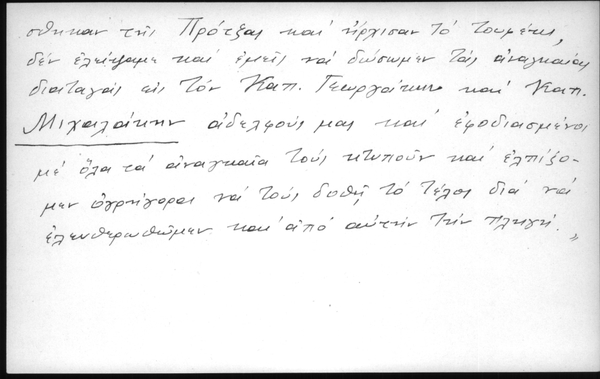 σθηκαν τῆς Πρότζας καὶ ἤρχισαν τὸ τουφέκι,
δέν ἐλείψαμε καὶ ἐμεῖς νά δώσωμεν τάς ἀναγκαίας
διαταγάς εἰς τόν Καπ. Γεωργάκην καὶ Καπ.
Μιχαλάκην ἀδελφούς μας καὶ ἐφοδιασμένοι
μέ ὅλα τά ἀναγκαῖα τούς κτυποῦν καὶ ἐλπίζο-
μεν ὀγρήγορα νά τούς δοθῇ τό τέλος διά νά
ἐλευθερωθῶμεν καὶ ἀπό αὐτήν τήν πληγή."